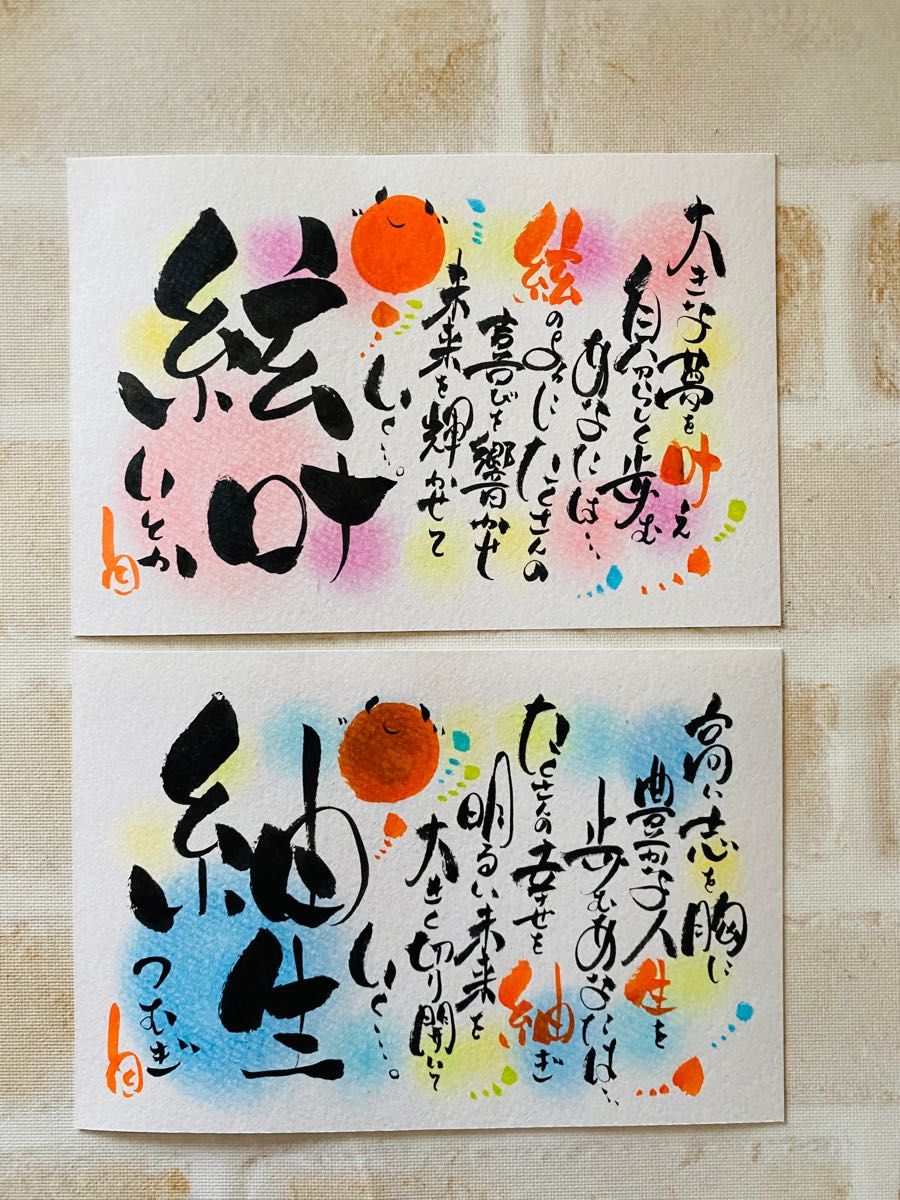 大きな夢を叶え
自分らしく歩む
あなたは…
絃のようにたくさんの
喜びを響かせ
未来を輝かせて
いく…。
絃叶
いとか
高い志を胸に
豊かな人生を
歩むあなたは…
たくさんの幸せを
紬ぎ
明るい未来を
大きく切り開いて
いく…。
紬生
つむぎ